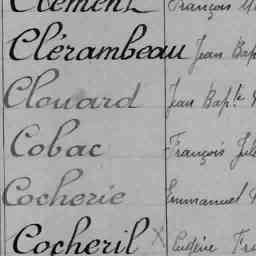 Clément François
Clérambeau Jean Bap
Clouard Jean Bapte
Cobac François Jule
Cocherie Emmanuel
Cocheril X Eugène Fra